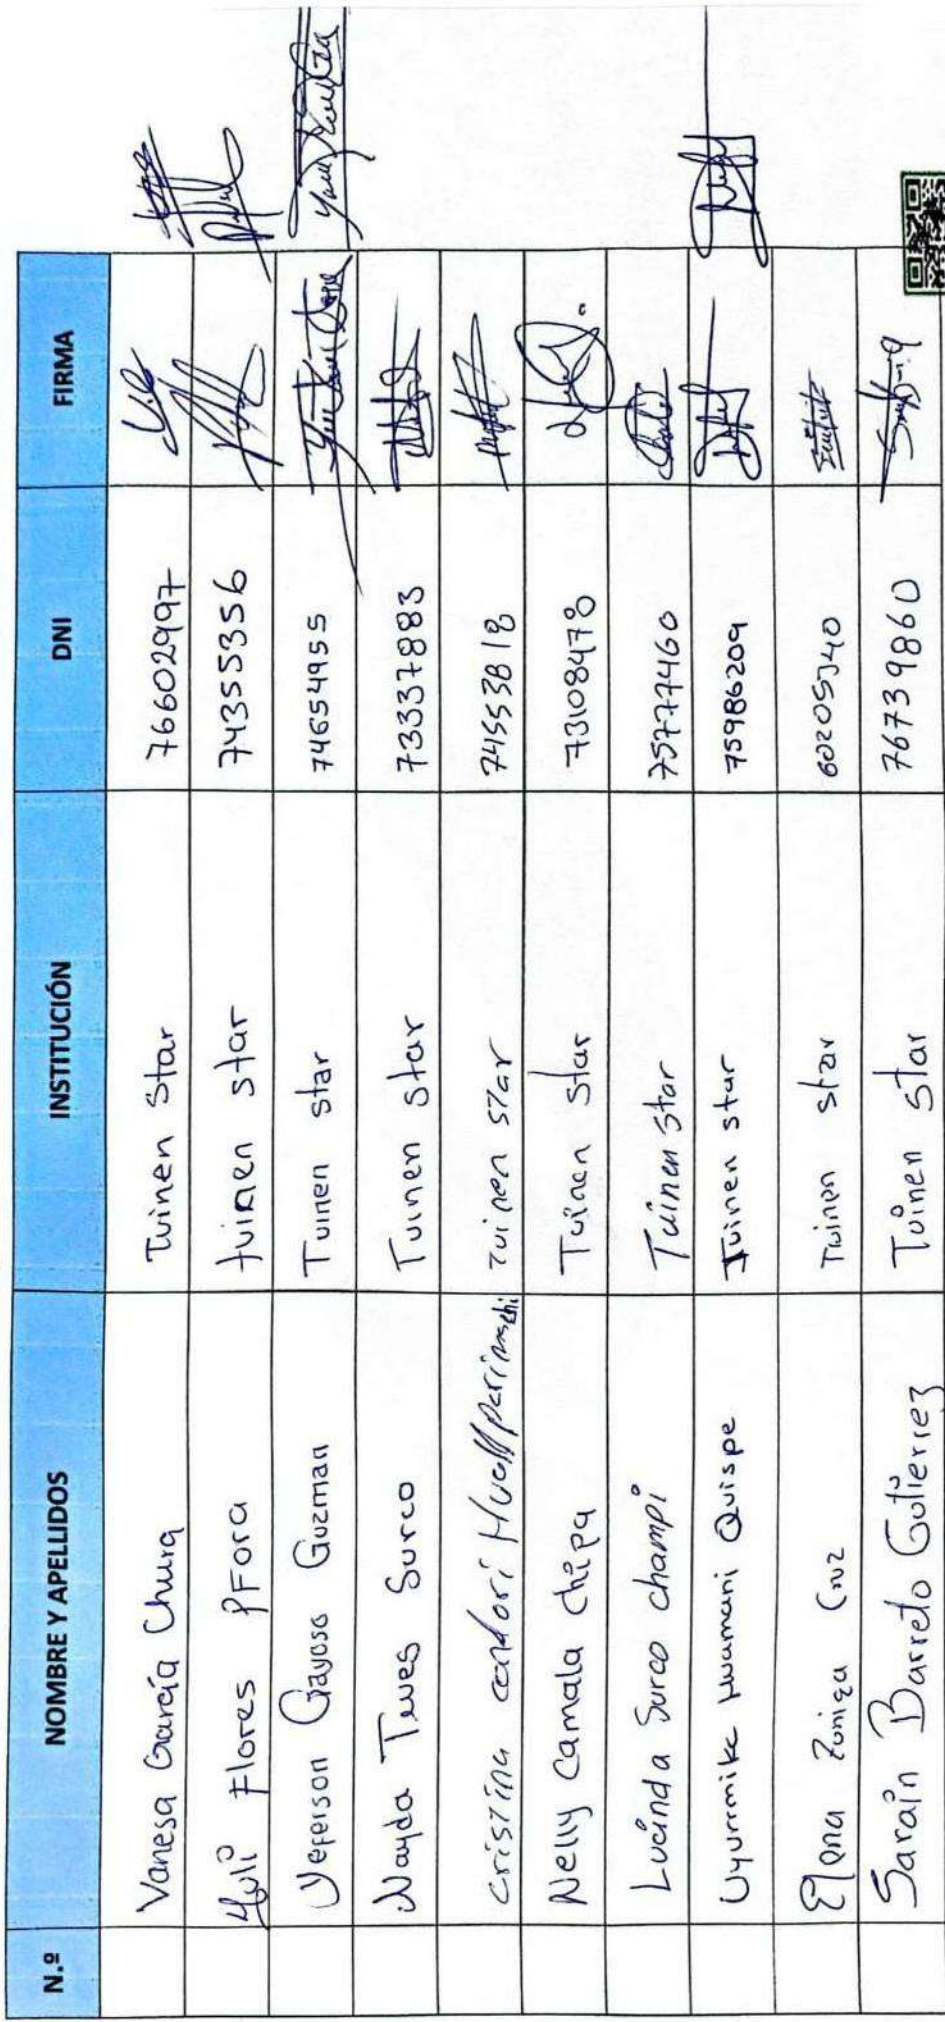 N.º NOMBRE Y APELLIDOS INSTITUCIÓN DNI FIRMA
Vanesa García Chura Tuinen Star 76602997
Yuli Flores PFora tuinen star 74355356
Yeferson Gayoso Guzman Tuinen star 74654955
Nayda Teves Surco Tuinen star 73337883
cristina condori Huallparimachi Tuinen star 74553818
Nelly Camala Chipa Tuinen Star 73108478
Lucinda Surco champi Tuinen star 75777460
Uyurmike Huamani Quispe Tuinen star 75986209
Elena Zuniga Cruz Tuinen star 60205340
Sarain Barreto Gutierrez Tuinen star 76739860